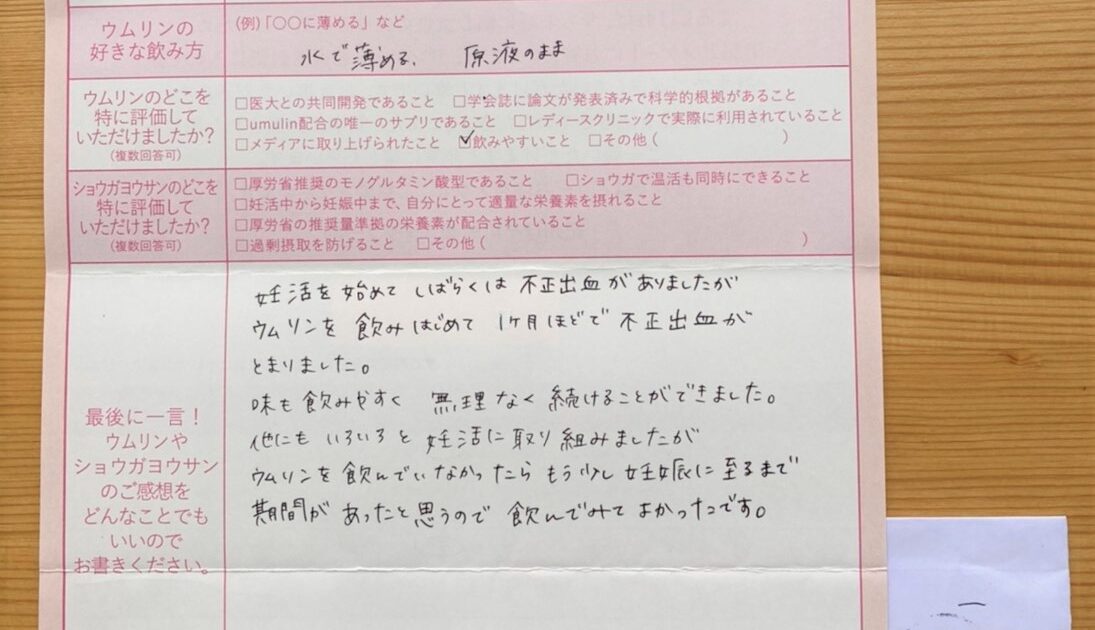 ウムリンの
好きな飲み方
(例)「〇〇に薄める」など
水で薄める、 原液のまま
ウムリンのどこを
特に評価して
いただけましたか?
(複数回答可)
□医大との共同開発であること □学会誌に論文が発表済みで科学的根拠があること
□umulin配合の唯一のサプリであること □レディースクリニックで実際に利用されていること
□メディアに取り上げられたこと ☑飲みやすいこと □その他 ( )
ショウガヨウサンのどこを
特に評価して
いただけましたか?
(複数回答可)
□厚労省推奨のモノグルタミン酸型であること □ショウガで温活も同時にできること
□妊活中から妊娠中まで、自分にとって適量な栄養素を摂れること
□厚労省の推奨量準拠の栄養素が配合されていること
□過剰摂取を防げること □その他 ( )
最後に一言!
ウムリンや
ショウガヨウサン
のご感想を
どんなことでも
いいので
お書きください。
妊活を始めて しばらくは 不正出血がありましたが
ウムリンを 飲みはじめて 1ヶ月ほどで 不正出血が
とまりました。
味も飲みやすく 無理なく続けることができました。
他にも いろいろと 妊活に取り組みましたが
ウムリンを飲んでいなかったら もう少し妊娠に至るまで
期間が あったと思うので 飲んでみて よかったです。